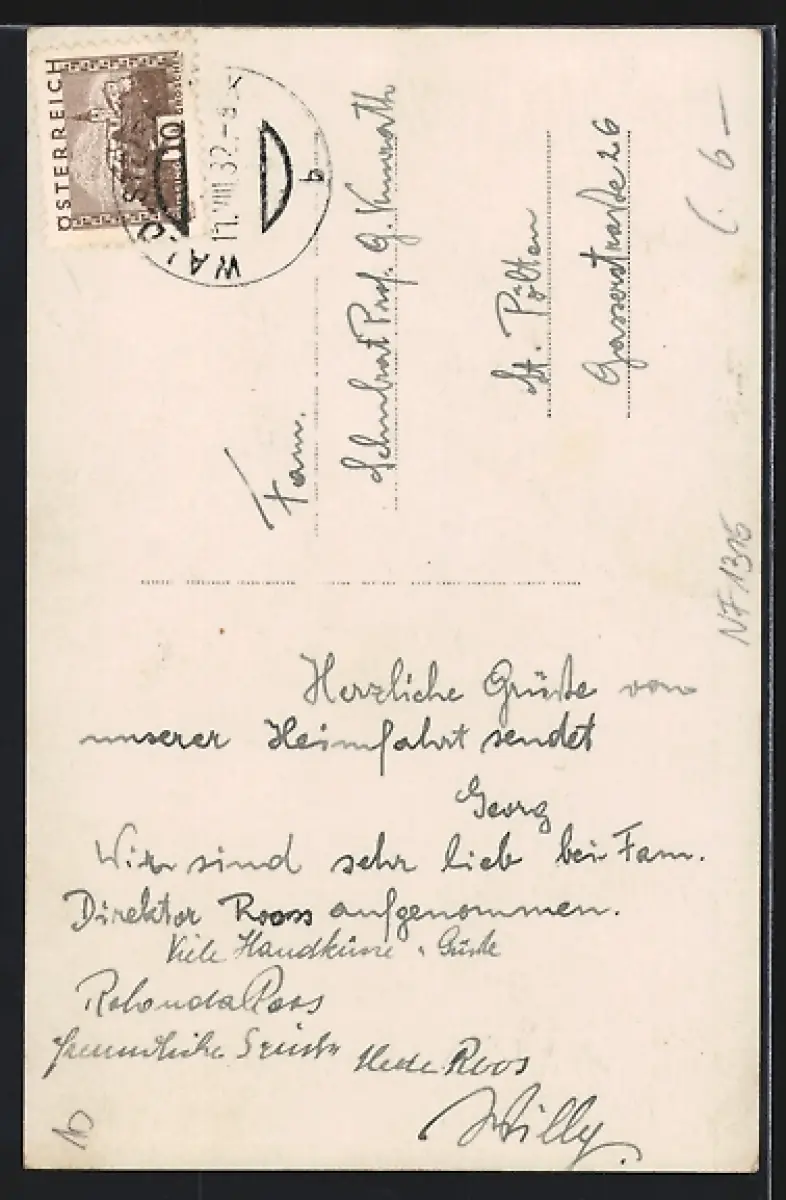 ÖSTERREICH
10
GROSCHEN
17.VIII.32.-8
b
Fam.
Schulrat Prof. G.
St. Pölten
Gasserstraße 26
6 —
NF 1316
Herzliche Grüße von
unserer Heimfahrt sendet
Georg
Wir sind sehr lieb bei Fam.
Direktor Rooss aufgenommen.
Viele Handküsse u Grüße
Roos
freundliche Grüße Hede Roos
Willy.